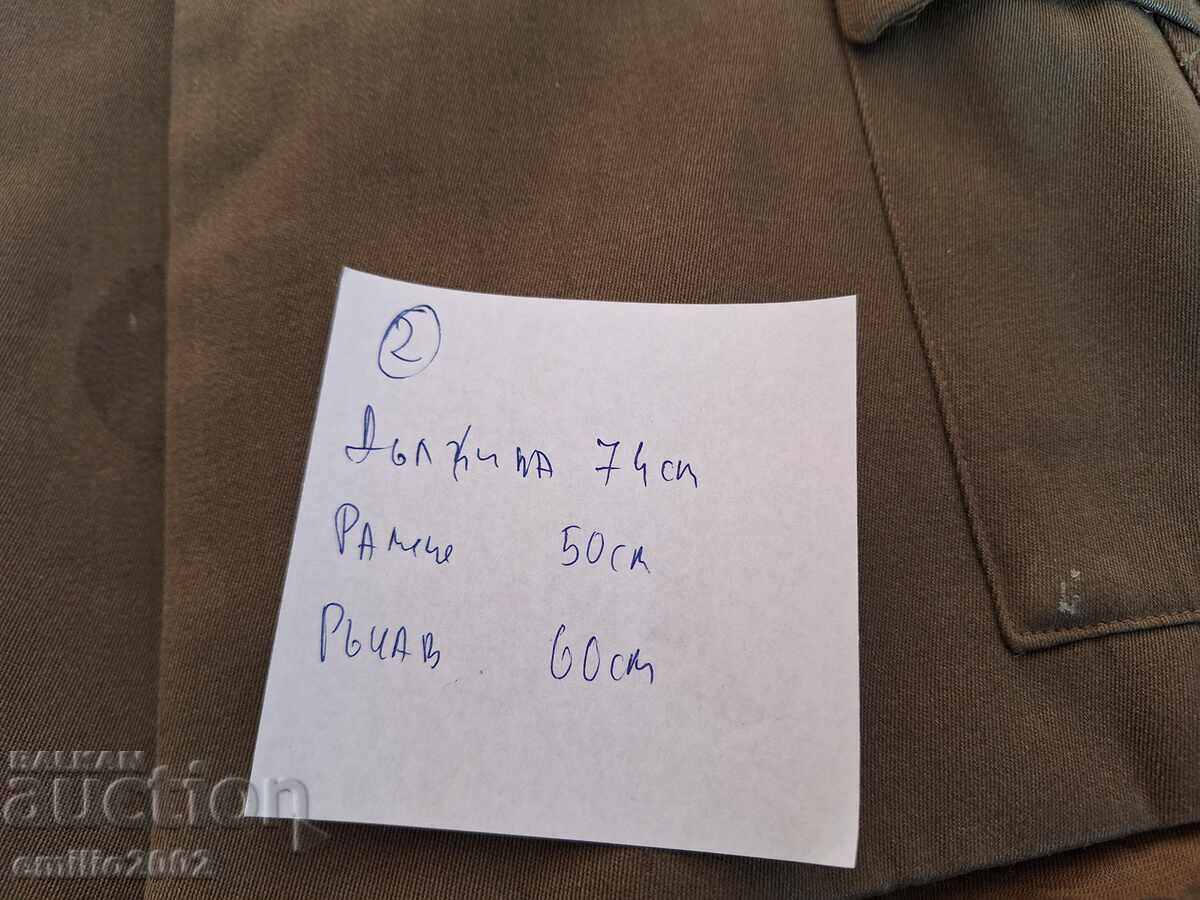 2
Дължина 74см
Рамене 50см
Ръкав 60см
BALKAN
auction
emilio2002